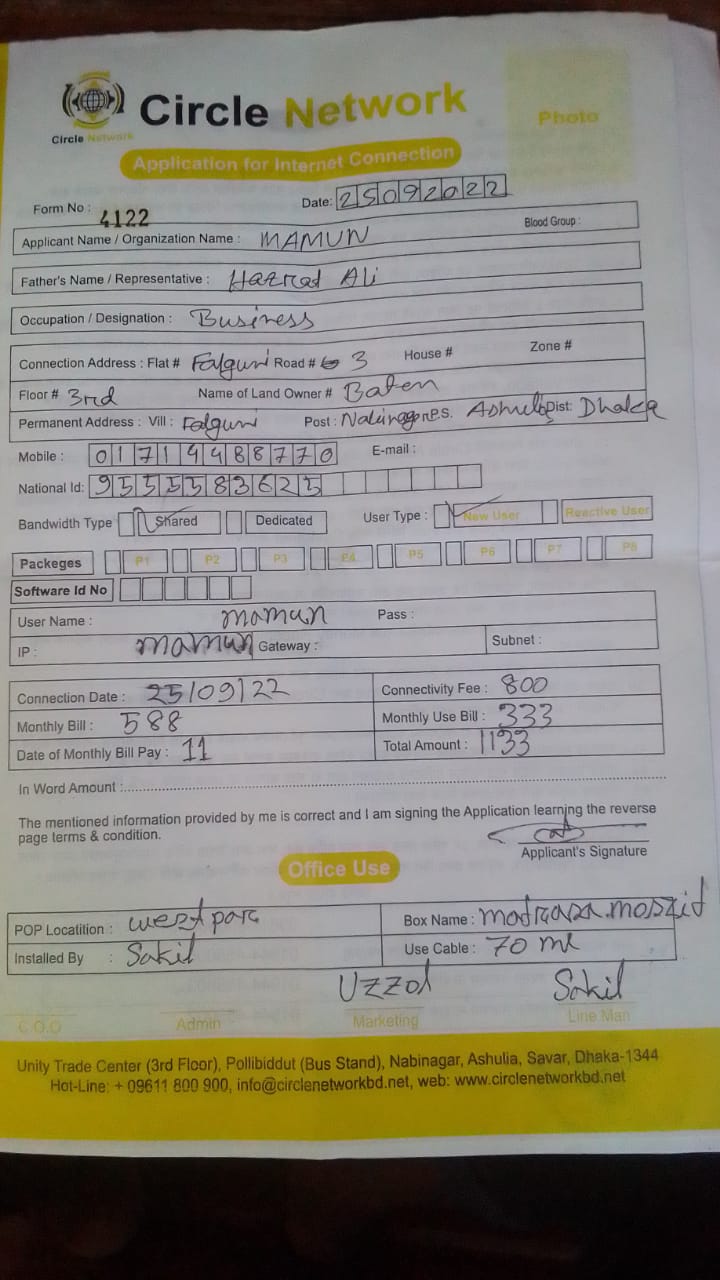 Circle Network
Circle Network
Photo
Application for Internet Connection
Form No : 4122
Date: 25092022
Applicant Name / Organization Name : MAMUN Blood Group :
Father's Name / Representative : Hazrat Ali
Occupation / Designation : Business
Connection Address : Flat # Falguni Road # 3 House # Zone #
Floor # 3rd Name of Land Owner # Baten
Permanent Address : Vill : Falguni Post : P.S. Dist: Dhaka
Mobile : 01719488770 E-mail :
National Id: 9555583625
Bandwidth Type Shared Dedicated User Type : New User Reactive User
Packeges P1 P2 P3 P4 P5 P6 P7 P8
Software Id No
User Name : mamun Pass :
IP : mamun Gateway : Subnet :
Connection Date : 25/09/22 Connectivity Fee : 800
Monthly Bill : 588 Monthly Use Bill : 333
Date of Monthly Bill Pay : 11 Total Amount : 1133
In Word Amount :
The mentioned information provided by me is correct and I am signing the Application learning the reverse
page terms & condition.
Applicant's Signature
Office Use
POP Locatition : west para Box Name : madrasa.moszid
Installed By : Sakil Use Cable : 70 ml
Uzzol Sakil
C.O.O Admin Marketing Line Man
Unity Trade Center (3rd Floor), Pollibiddut (Bus Stand), Nabinagar, Ashulia, Savar, Dhaka-1344
Hot-Line: + 09611 800 900, info@circlenetworkbd.net, web: www.circlenetworkbd.net